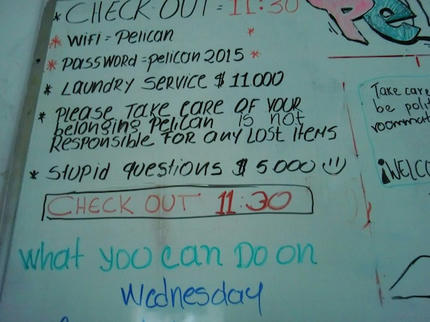 * CHECK OUT = 11:30
* WiFi = Pelican
* PASSWORD = pelican 2015 *
* LAUNDRY SERVICE $ 11.000
* PLEASE TAKE CARE OF YOUR
belonging Pelican is not
Responsible for any lost items
* Stupid questions $ 5000 :)
CHECK OUT 11:30
What you can Do on
Wednesday
Take care
be poli
roommat
¡WELCO